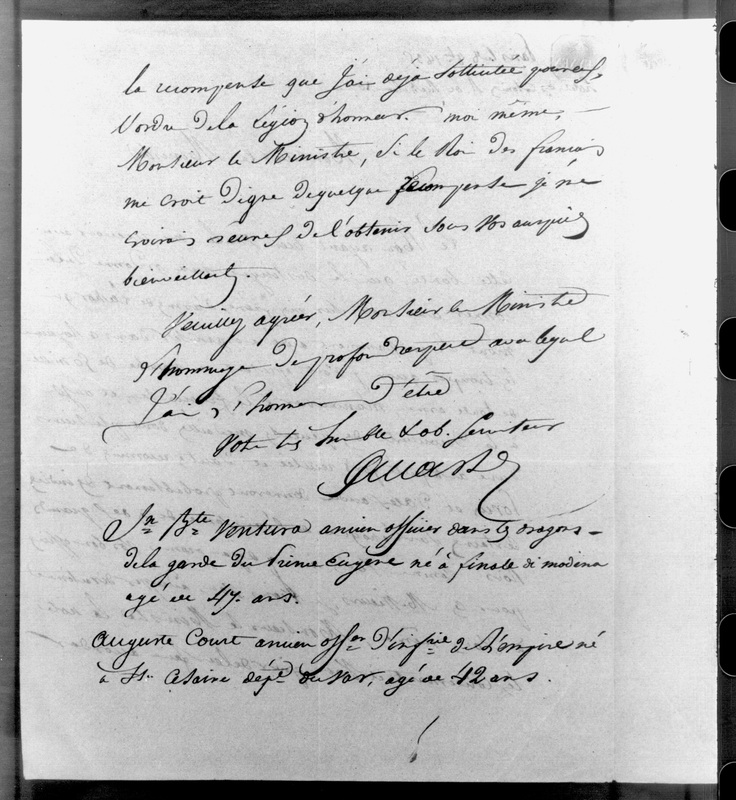 la recompense que J'ai deja Sollicitée pour eux,
l'ordre de la Légion d'honneur. moi même,
Monsieur le Ministre, Si le Roi des français
me croit digne de quelque recompense je ne
croirais de l'obtenir sous vos auspices
bienveillants.
Veuillez agréer, Monsieur le Ministre
l'hommage du profond respect avec lequel
J'ai l'honneur d'être
Votre très humble & ob. Serviteur
Allard
Jn Bte Ventura ancien officier dans les dragons
de la garde du Prince Eugène né à finale di modena
agé de 47. ans.
Auguste Court ancien offer d'infrie de l'Empire né
à St. Cesaire dépt du Var, agé de 42 ans.